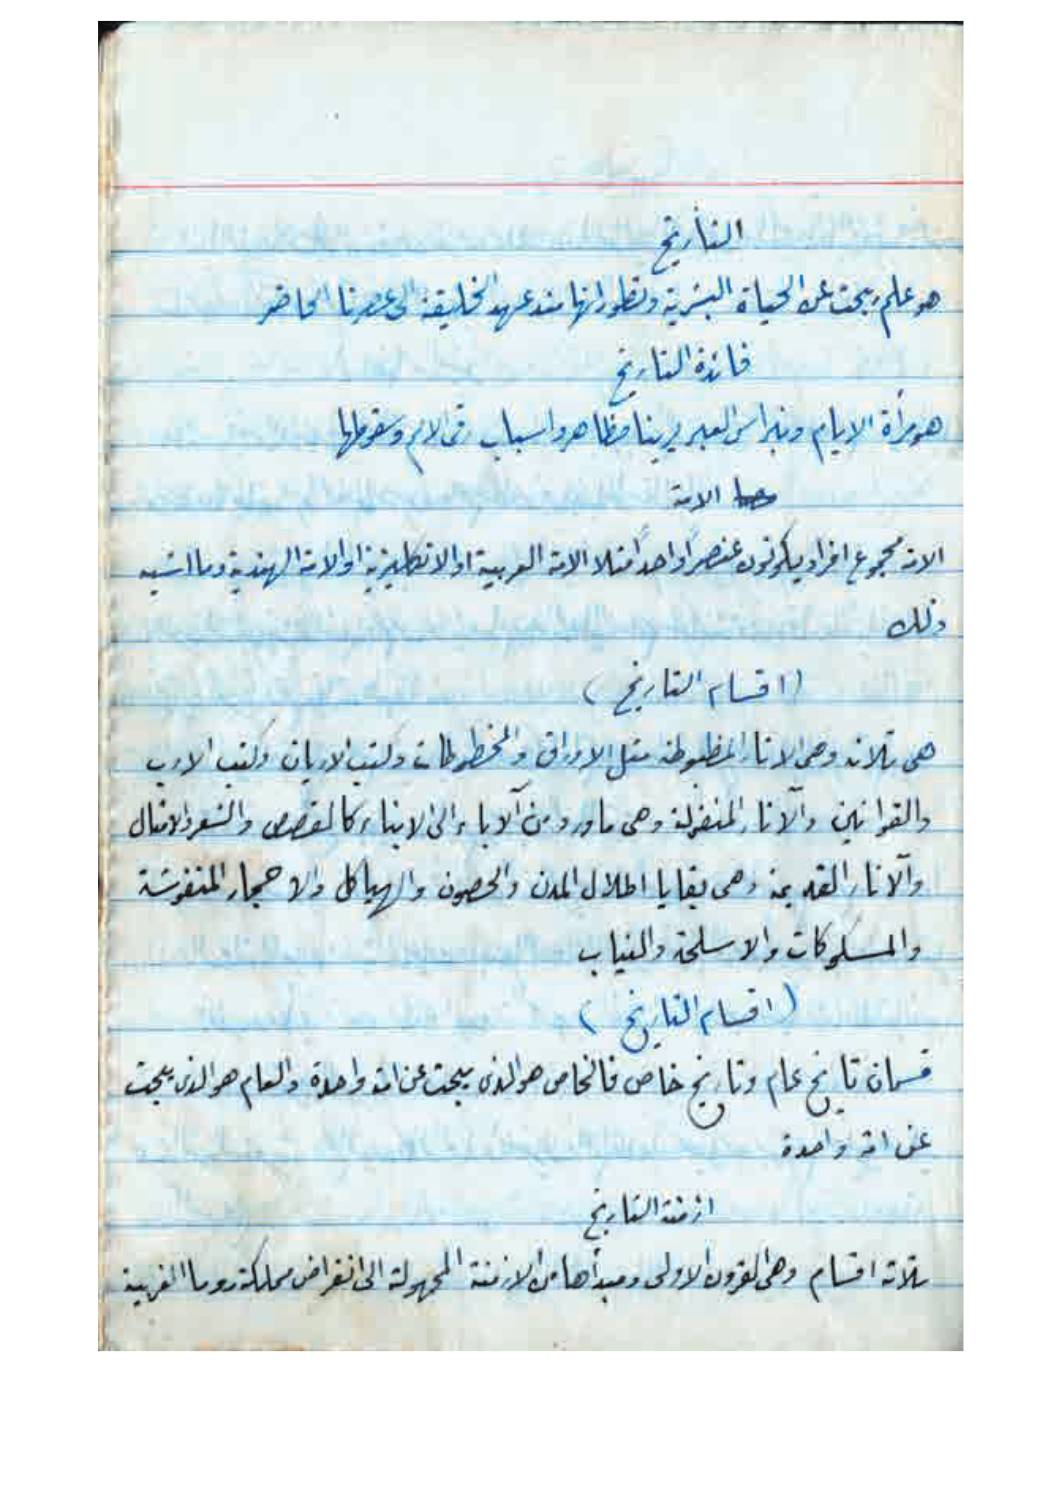 التأريخ
هو علم يبحث عن الحياة البشرية وتطوراتها منذ عهد الخليقة الى عصرنا الحاضر
فائدة التاريخ
هو مرأة الايام ونبراس العبر يرينا مظاهر واسباب رقي الامم وسقوطها
الامة
الامة مجموع افراد يكونون عنصراً واحداً مثلا الامة العربية او الانكليزية او الامة الهندية وما اشبه
ذلك
(اقسام التاريخ)
هي ثلاثة وهي الاثار المظبوطة مثل الاوراق والمخطوطات وكتب الاديان وكتب الادب
والقوانين والآثار المنقولة وهي ما ورد من الآباء الى الابناء كالقصص والشعر والامثال
والآثار القديمة وهي بقايا اطلال المدن والحصون والهياكل والاحجار المنقوشة
والمسكوكات والاسلحة والثياب
(اقسام التاريخ)
قسمان تاريخ عام وتاريخ خاص فالخاص هو الذي يبحث عن امة واحدة والعام هو الذي يبحث
عن امة واحدة
ازمنة التاريخ
ثلاثة اقسام وهي القرون الاولى ومبدأها من الازمنة المجهولة الى انقراض مملكة روما الغربية